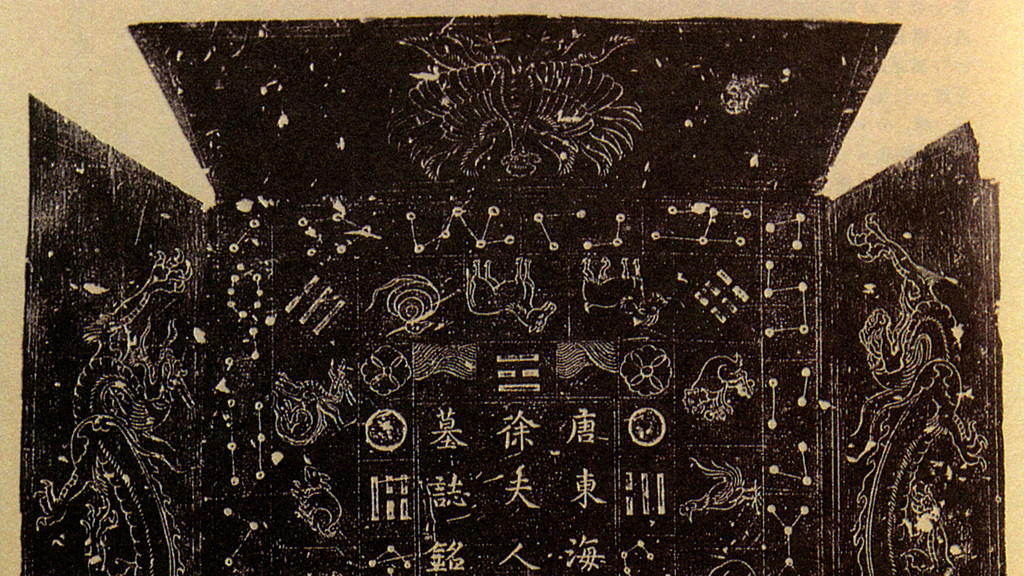 唐東海
徐夫人
墓誌銘